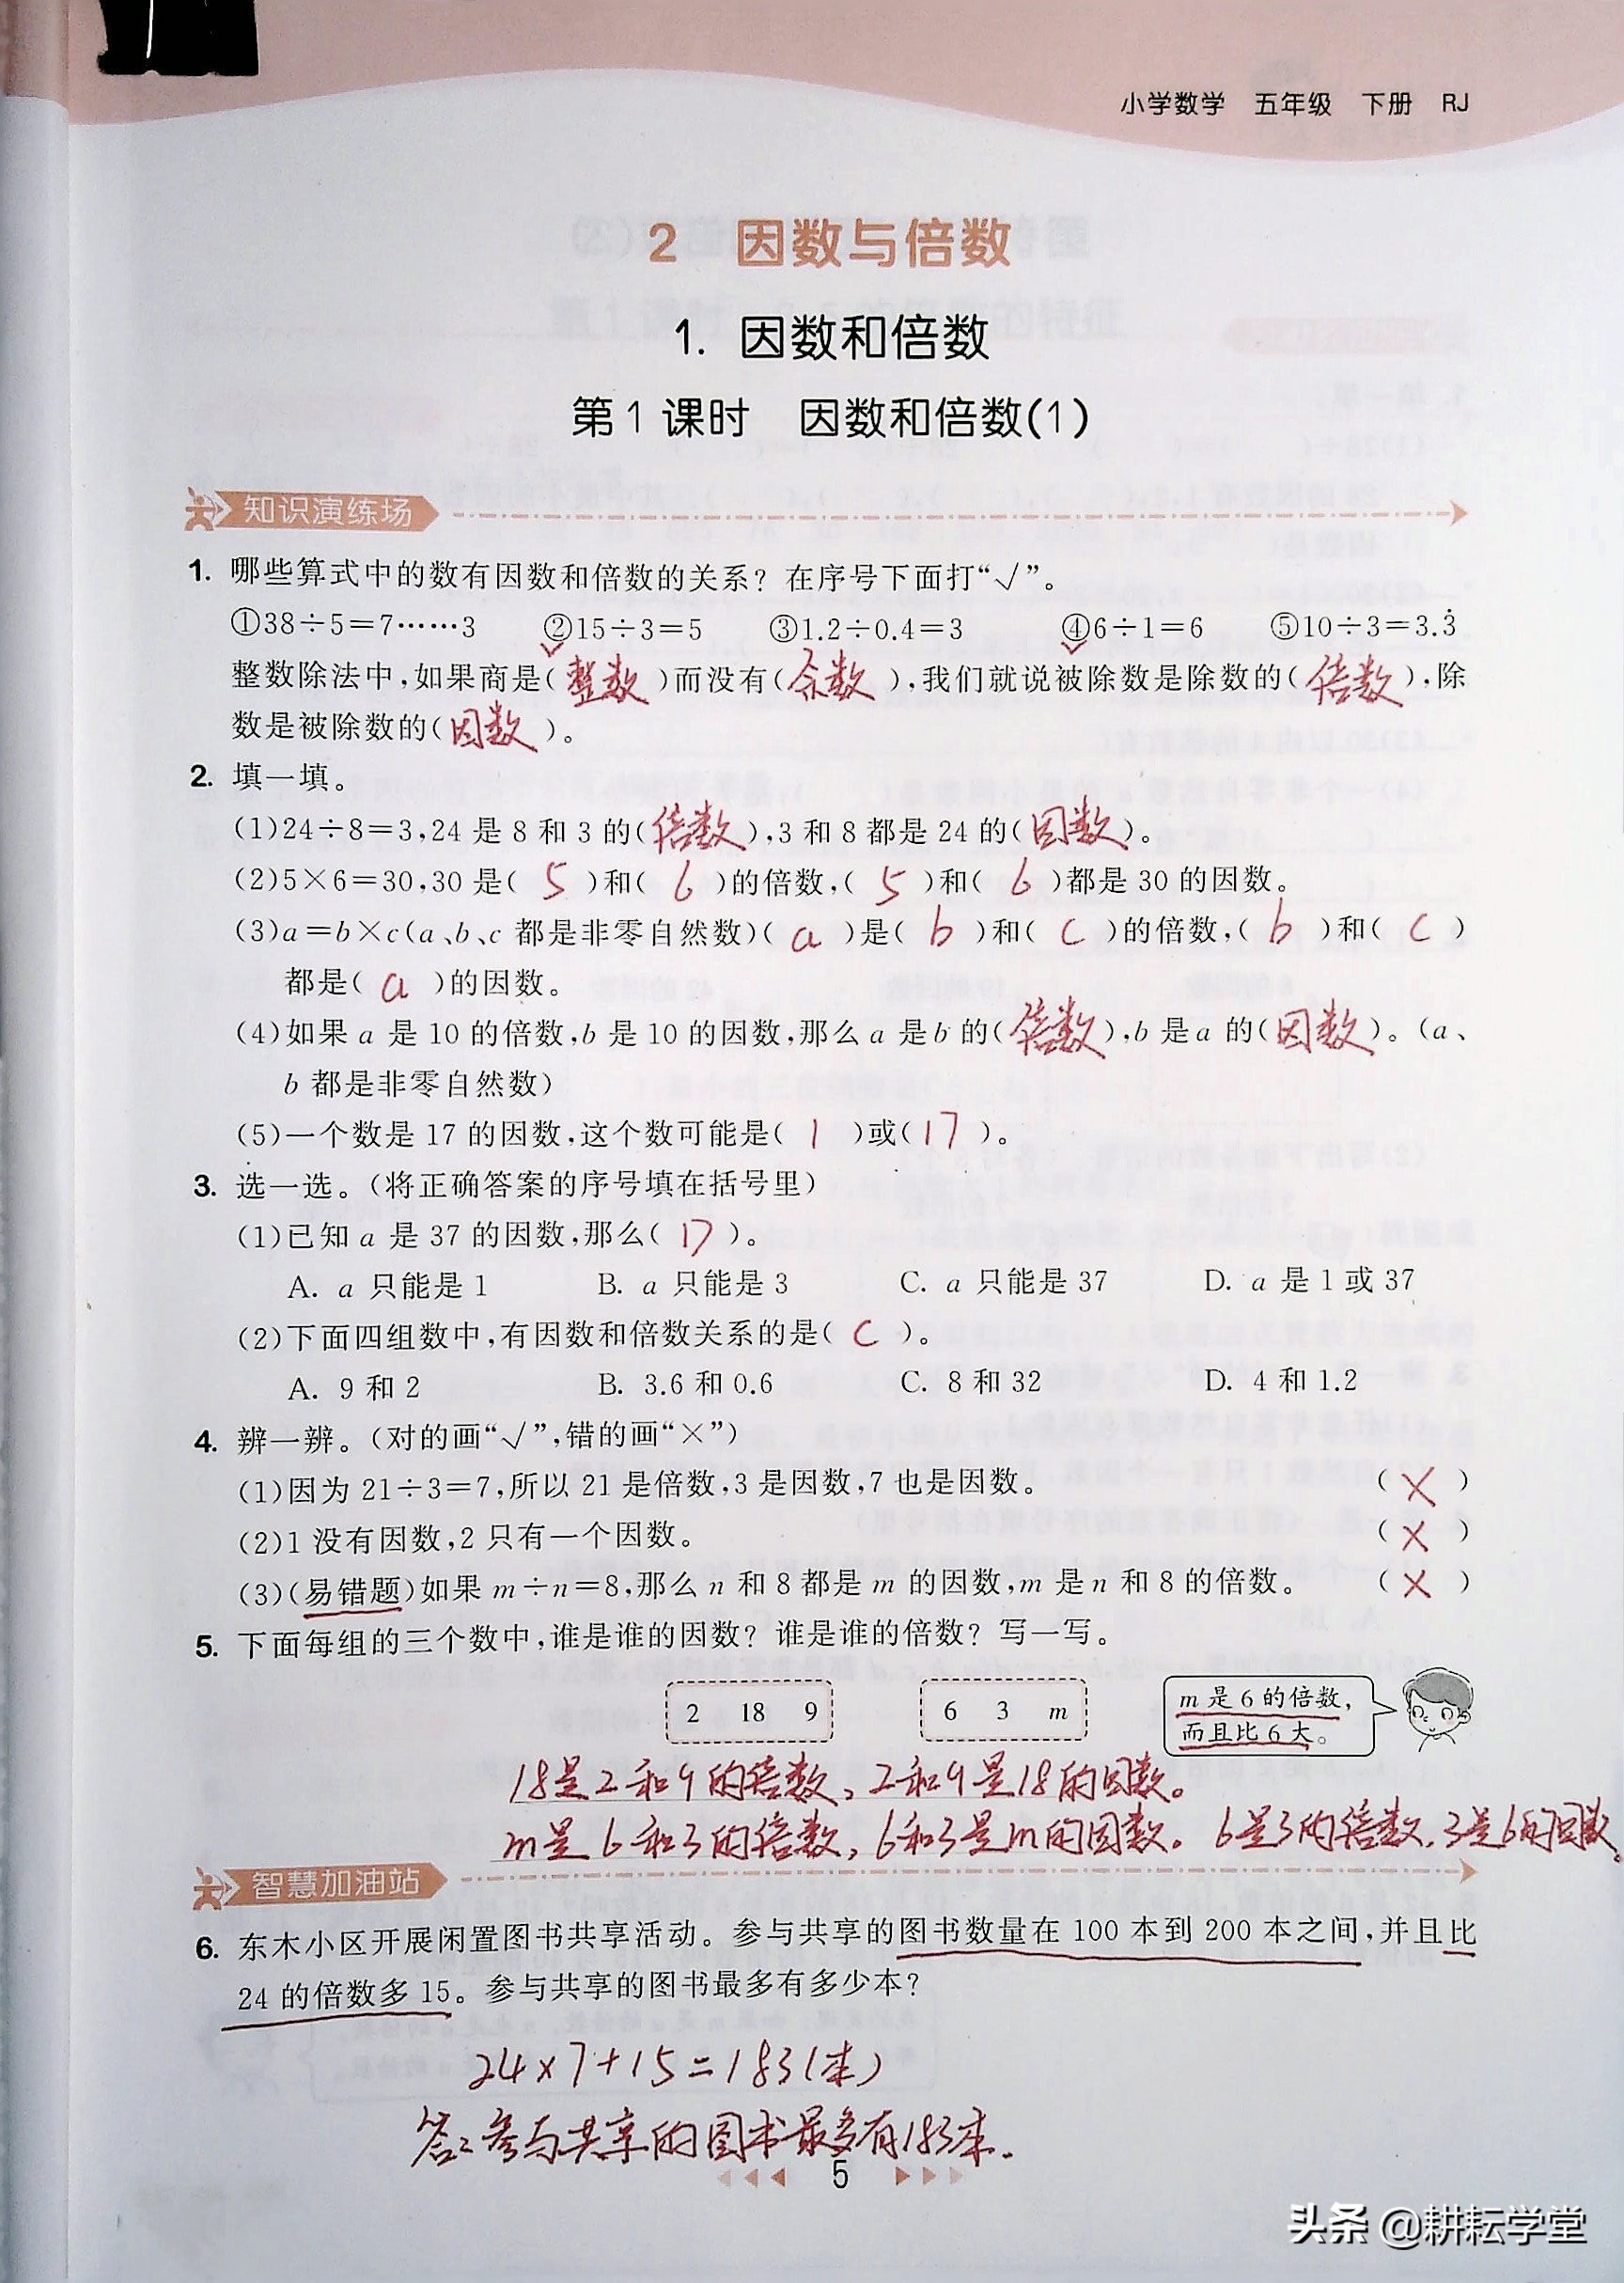 小学数学 五年级 下册 RJ
2 因数与倍数
1. 因数和倍数
第1课时 因数和倍数(1)
知识演练场
1. 哪些算式中的数有因数和倍数的关系？在序号下面打“√”。
①38÷5=7……3 ②15÷3=5 ③1.2÷0.4=3 ④6÷1=6 ⑤10÷3=3.3̇
✓ ✓
整数除法中,如果商是(整数)而没有(余数),我们就说被除数是除数的(倍数),除
数是被除数的(因数)。
2. 填一填。
(1)24÷8=3,24是8和3的(倍数),3和8都是24的(因数)。
(2)5×6=30,30是( 5 )和( 6 )的倍数,( 5 )和( 6 )都是30的因数。
(3)a=b×c(a、b、c都是非零自然数)( a )是( b )和( c )的倍数,( b )和( c )
都是( a )的因数。
(4)如果a是10的倍数,b是10的因数,那么a是b的(倍数),b是a的(因数)。(a、
b都是非零自然数)
(5)一个数是17的因数,这个数可能是( 1 )或( 17 )。
3. 选一选。(将正确答案的序号填在括号里)
(1)已知a是37的因数,那么( 17 )。
A. a只能是1 B. a只能是3 C. a只能是37 D. a是1或37
(2)下面四组数中,有因数和倍数关系的是( C )。
A. 9和2 B. 3.6和0.6 C. 8和32 D. 4和1.2
4. 辨一辨。(对的画“√”,错的画“×”)
(1)因为21÷3=7,所以21是倍数,3是因数,7也是因数。 ( × )
(2)1没有因数,2只有一个因数。 ( × )
(3)(易错题)如果m÷n=8,那么n和8都是m的因数,m是n和8的倍数。 ( × )
5. 下面每组的三个数中,谁是谁的因数？谁是谁的倍数？写一写。
2 18 9 6 3 m m是6的倍数,
而且比6大。
18是2和9的倍数,2和9是18的因数。
m是6和3的倍数,6和3是m的因数。6是3的倍数,3是6的因数。
智慧加油站
6. 东木小区开展闲置图书共享活动。参与共享的图书数量在100本到200本之间,并且比
24的倍数多15。参与共享的图书最多有多少本？
24×7+15=183(本)
答:参与共享的图书最多有183本.
5
头条 @耕耘学堂